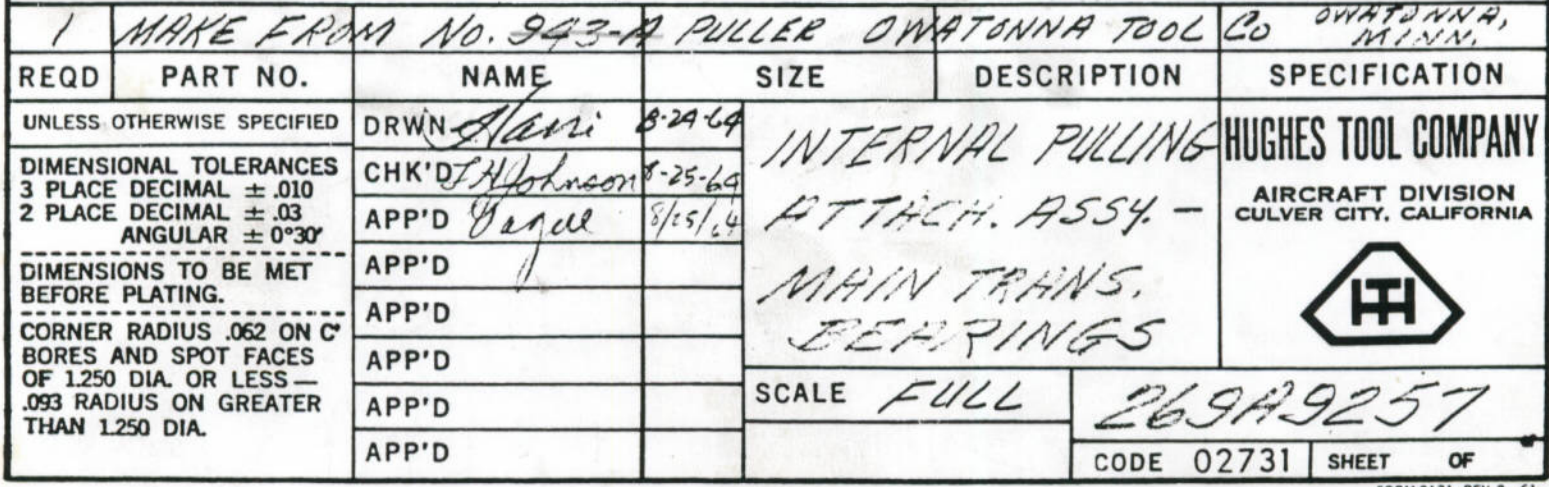 1 MAKE FROM No. 943-A PULLER OWATONNA TOOL Co OWATONNA,
MINN.
REQD PART NO. NAME SIZE DESCRIPTION SPECIFICATION
UNLESS OTHERWISE SPECIFIED
DIMENSIONAL TOLERANCES
3 PLACE DECIMAL ± .010
2 PLACE DECIMAL ± .03
ANGULAR ± 0°30'
DIMENSIONS TO BE MET
BEFORE PLATING.
CORNER RADIUS .062 ON C'
BORES AND SPOT FACES
OF 1.250 DIA. OR LESS—
.093 RADIUS ON GREATER
THAN 1.250 DIA.
DRWN 8-24-64
CHK'D J H Johnson 8-25-64
APP'D 8/25/64
APP'D
APP'D
APP'D
APP'D
APP'D
INTERNAL PULLING
ATTACH. ASSY. -
MAIN TRANS.
BEARINGS
SCALE FULL
HUGHES TOOL COMPANY
AIRCRAFT DIVISION
CULVER CITY, CALIFORNIA
HTH
269A9257
CODE 02731 SHEET OF